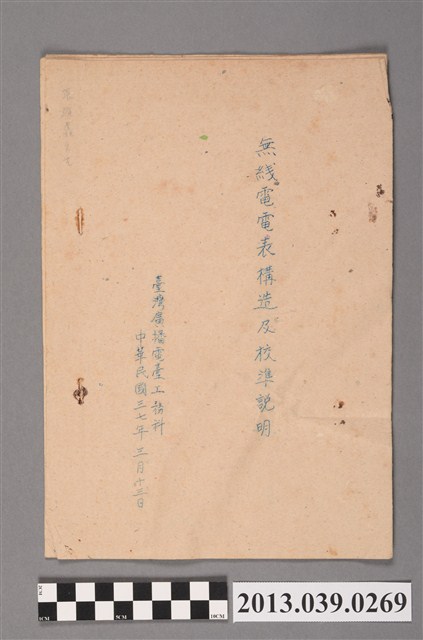 無綫電電表構造及校準說明
臺灣廣播電臺工務科
中華民國三七年三月十三日
2013.039.0269
0CM
5CM
10CM